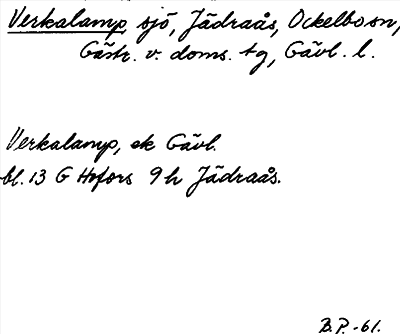 Verkalamp, sjö, Jädraås, Ockelbo sn,
Gästr. v. doms. tg, Gävl. l.
Verkalamp, ek Gävl.
bl. 13 G Hofors 9 h Jädraås.
B.P. -61.